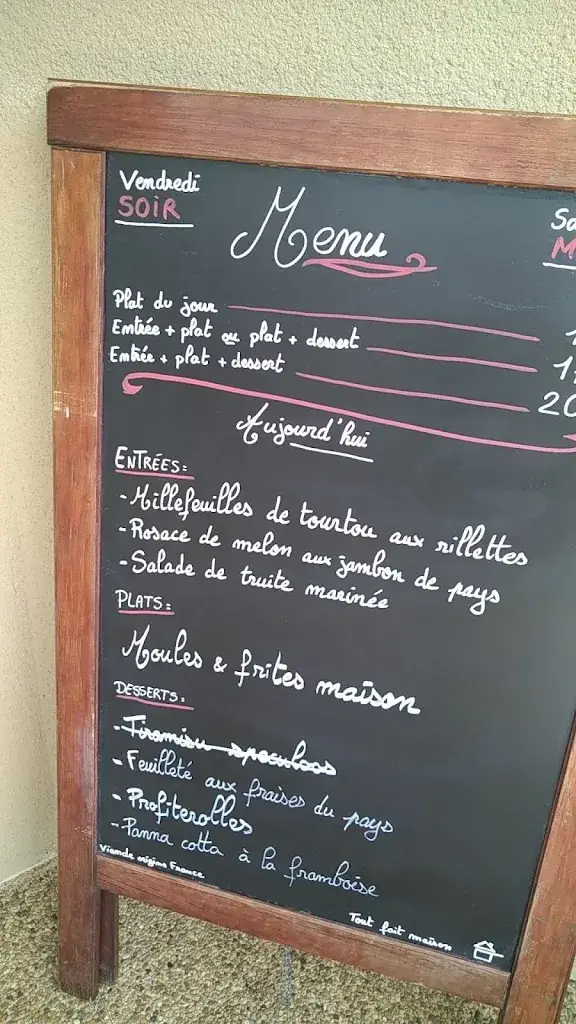 Vendredi
SOIR
Menu
Plat du jour
Entrée + plat ou plat + dessert
Entrée + plat + dessert 20
Aujourd'hui
ENTRÉES:
- Millefeuilles de tourtou aux rillettes
- Rosace de melon aux jambon de pays
- Salade de truite marinée
PLATS:
Moules & frites maison
DESSERTS:
- Tiramisu speculoos
- Feuilleté aux fraises du pays
- Profiterolles
- Panna cotta à la framboise
Viande origine France
Tout fait maison